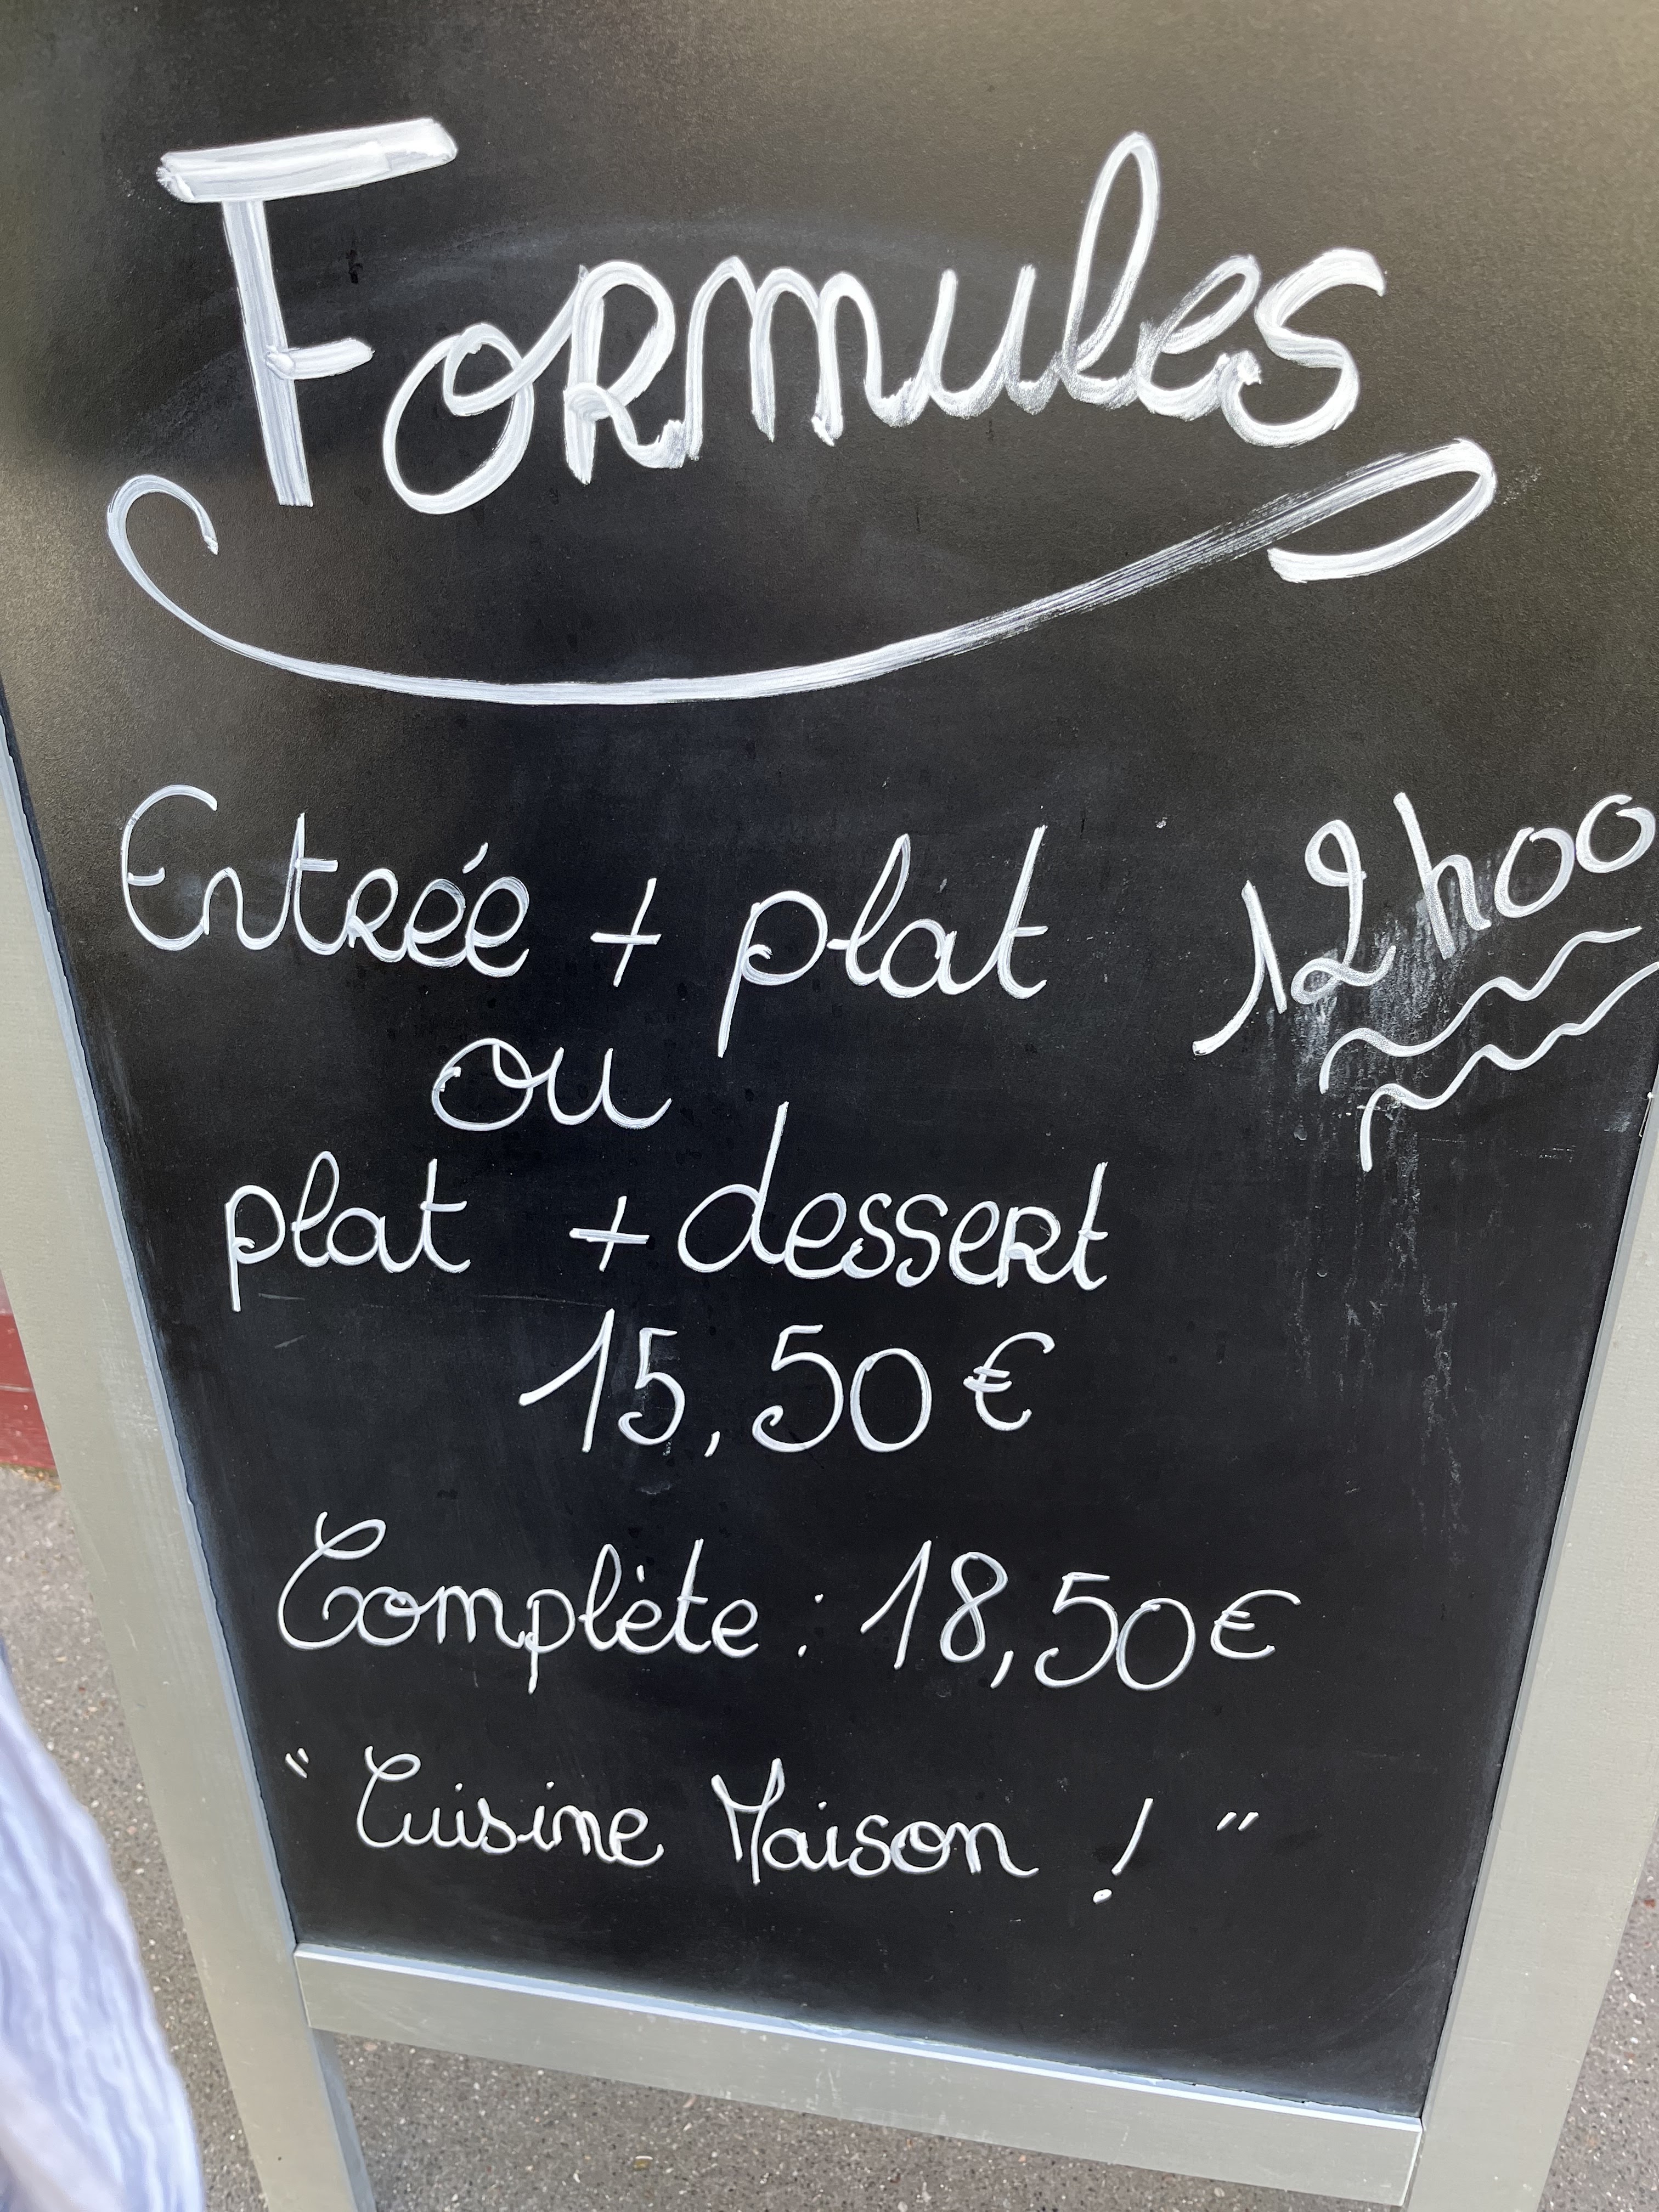 Formules
Entrée + plat
12h00
ou
plat + dessert
15,50€
Complète : 18,50€
" Cuisine Maison ! "